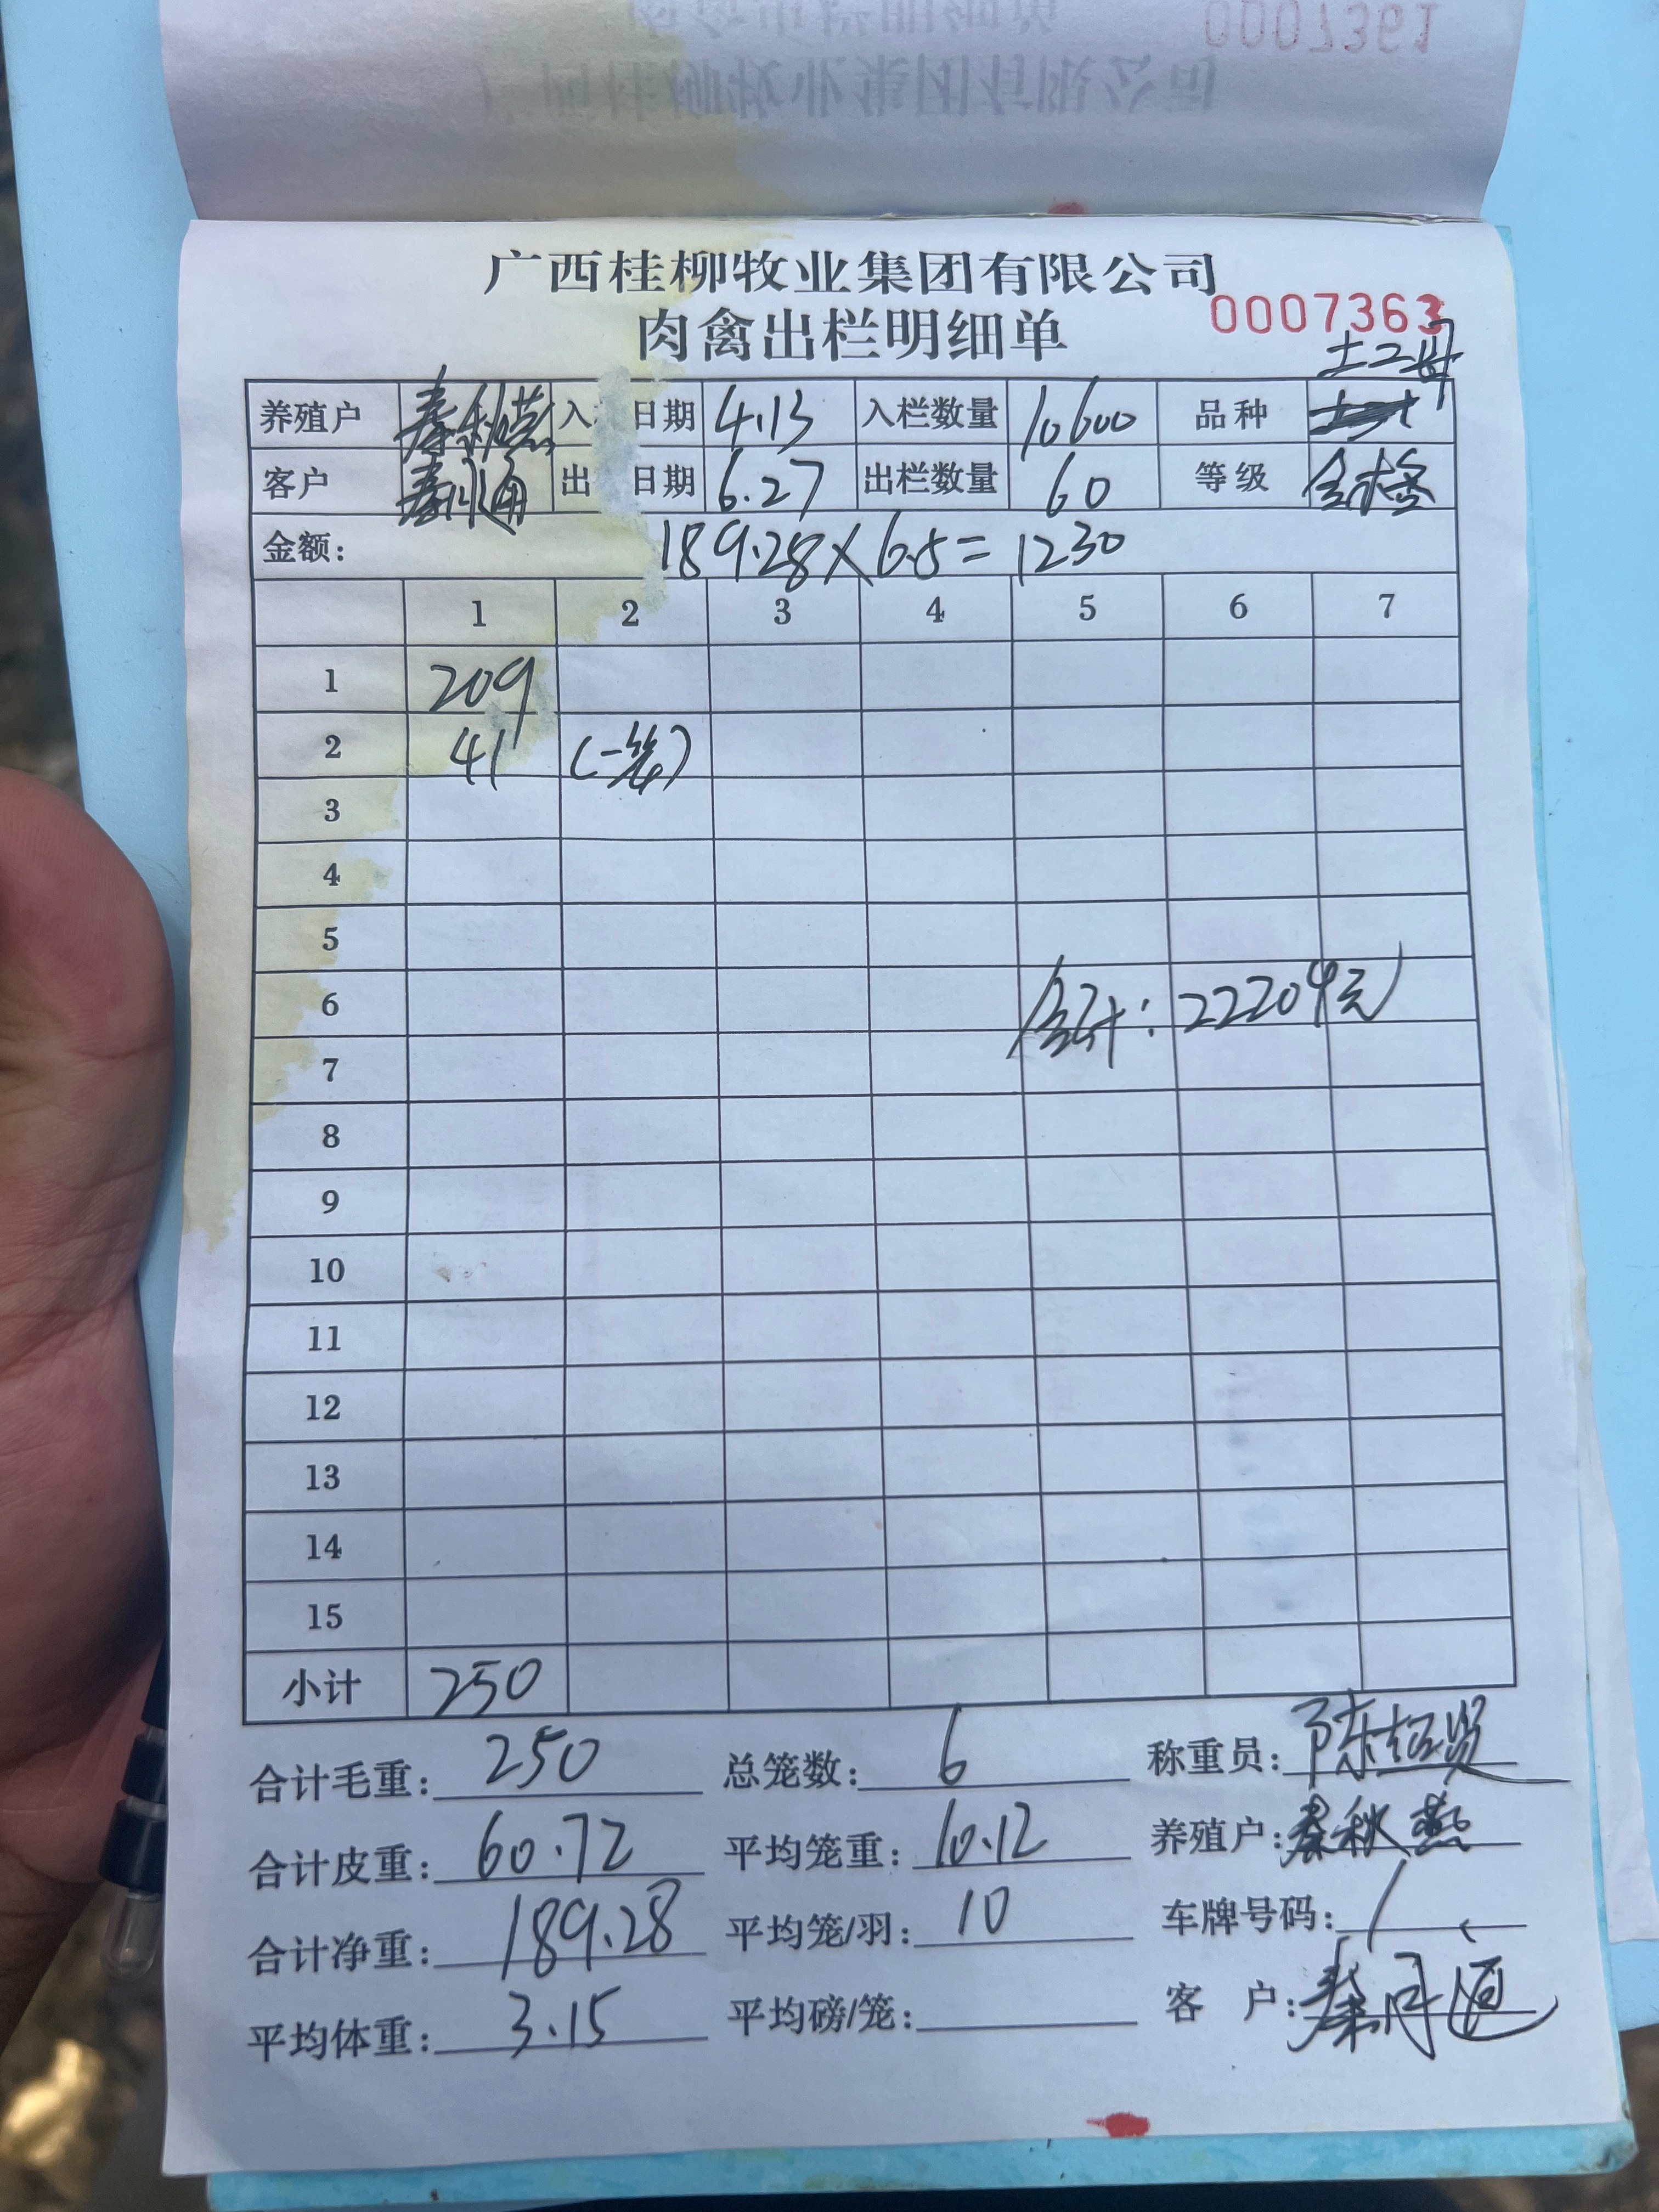 0007361
广西桂柳牧业集团有限公司
广西桂柳牧业集团有限公司
肉禽出栏明细单
0007363
土二母
养殖户 秦秋燕 入 日期 4.13 入栏数量 10600 品种
客户 出 日期 6.27 出栏数量 60 等级 合格
金额: 189.28×6.5=1230
1 2 3 4 5 6 7
1 209
2 41 (一笼)
3
4
5
6 合计:22204元
7
8
9
10
11
12
13
14
15
小计 250
合计毛重: 250 总笼数: 6 称重员:
合计皮重: 60.72 平均笼重: 10.12 养殖户: 秦秋燕
合计净重: 189.28 平均笼/羽: 10 车牌号码: /
平均体重: 3.15 平均磅/笼: 客 户: